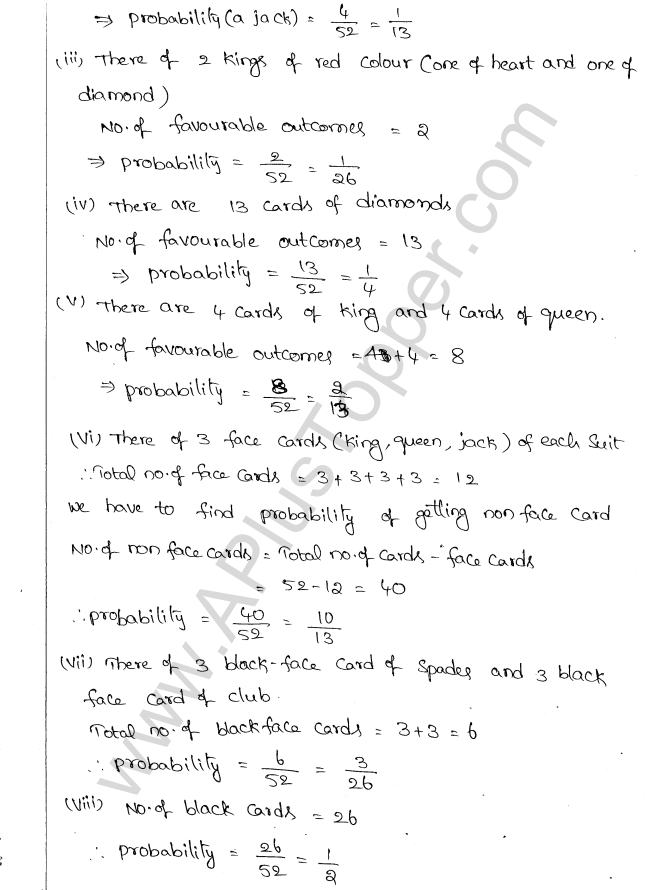 ⇒ probability (a jack) = 4/52 = 1/13
(iii) There of 2 kings of red colour (one of heart and one of
diamond)
No. of favourable outcomes = 2
⇒ probability = 2/52 = 1/26
(iv) There are 13 cards of diamonds
No. of favourable outcomes = 13
⇒ probability = 13/52 = 1/4
(v) There are 4 cards of king and 4 cards of queen.
No. of favourable outcomes = 4+4 = 8
⇒ probability = 8/52 = 2/13
(vi) There of 3 face cards (king, queen, jack) of each suit
∴ Total no. of face cards = 3+3+3+3 = 12
we have to find probability of getting non face card
No. of non face cards = Total no. of cards - face cards
= 52-12 = 40
∴ probability = 40/52 = 10/13
(vii) There of 3 black-face card of spades and 3 black
face card of club.
Total no. of black face cards = 3+3 = 6
∴ probability = 6/52 = 3/26
(viii) No. of black cards = 26
∴ probability = 26/52 = 1/2
www.APlusTopper.com